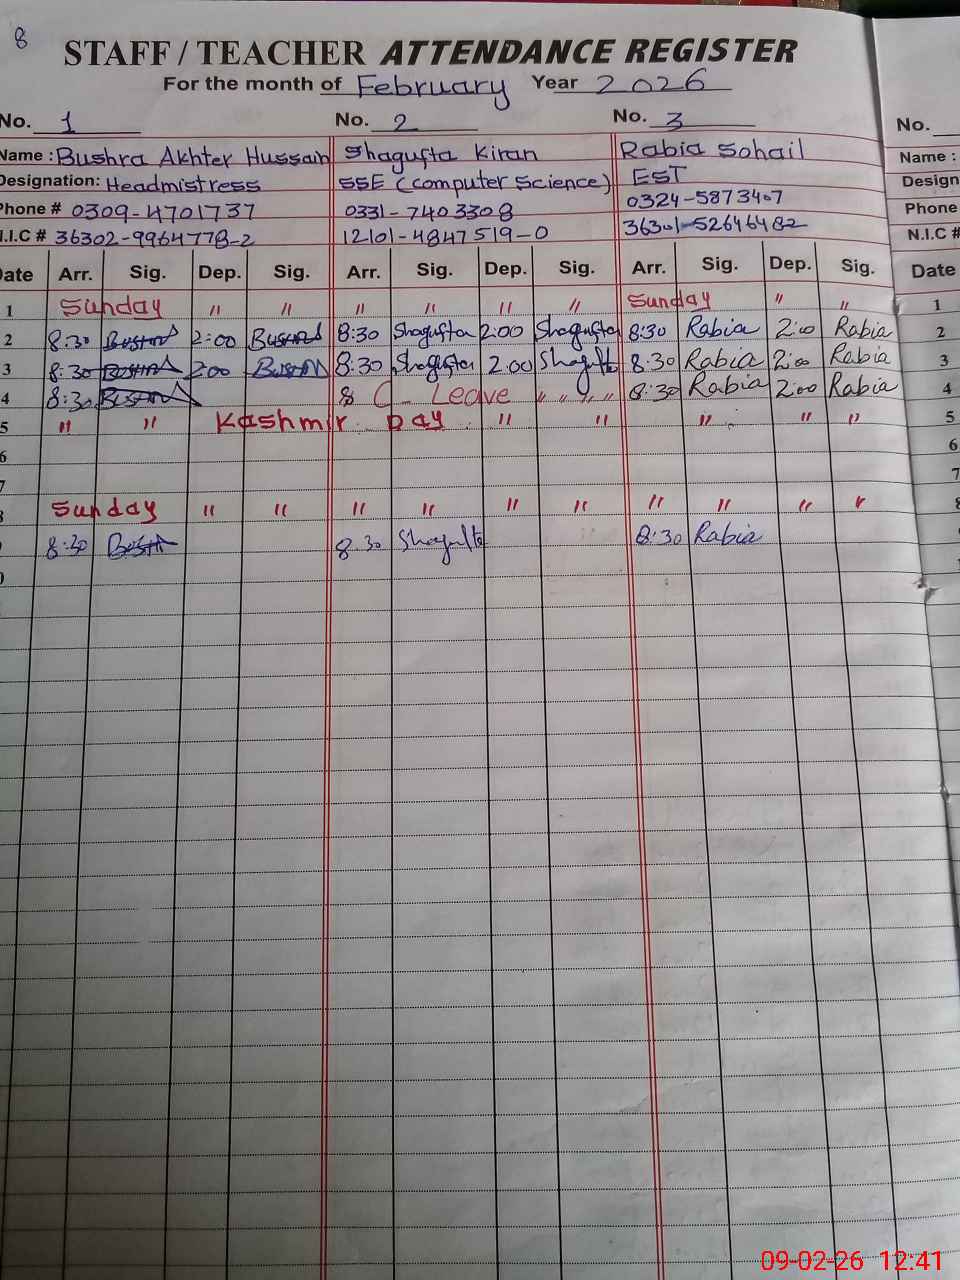 8
STAFF / TEACHER ATTENDANCE REGISTER
For the month of February Year 2026
No. 1 No. 2 No. 3 No.
Name : Bushra Akhter Hussain Shagufta Kiran Rabia Sohail Name :
Designation: Headmistress SSE (Computer Science) EST Design
Phone # 0309-4701737 0331-7403308 0324-5873407 Phone
N.I.C # 36302-9964778-2 12101-4847519-0 36301-52646482 N.I.C #
Date Arr. Sig. Dep. Sig. Arr. Sig. Dep. Sig. Arr. Sig. Dep. Sig. Date
1 Sunday " " " " " " Sunday " " 1
2 8:30 Bushra 2:00 Bushra 8:30 Shagufta 2:00 Shagufta 8:30 Rabia 2:00 Rabia 2
3 8:30 Bushra 2:00 Bushra 8:30 Shagufta 2:00 Shagufta 8:30 Rabia 2:00 Rabia 3
4 8:30 Bushra 8 C - Leave " " " " 8:30 Rabia 2:00 Rabia 4
5 " " Kashmir Day " " " " " 5
6 6
7 7
8 Sunday " " " " " " " " " " 8
8:30 Bushra 8:30 Shagufta 8:30 Rabia
09-02-26 12:41